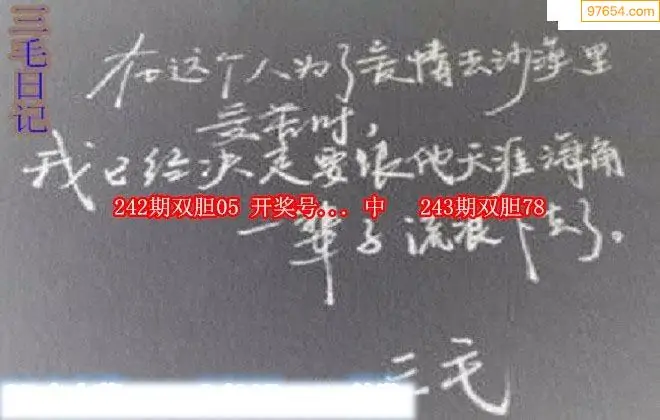 三毛日记
97654.com
在这个人为了爱情去沙漠里
受苦时，
我已经决定要跟他天涯海角
242期双胆05 开奖号... 中 243期双胆78
一辈子流浪下去了。
三毛